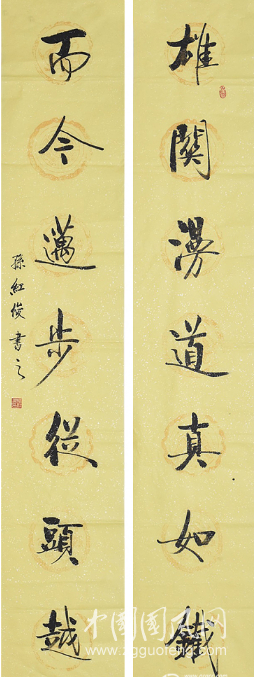 雄關漫道真如鐵
而今邁步從頭越
孫紅俊書之
中国国风网
www.zgguofeng.com